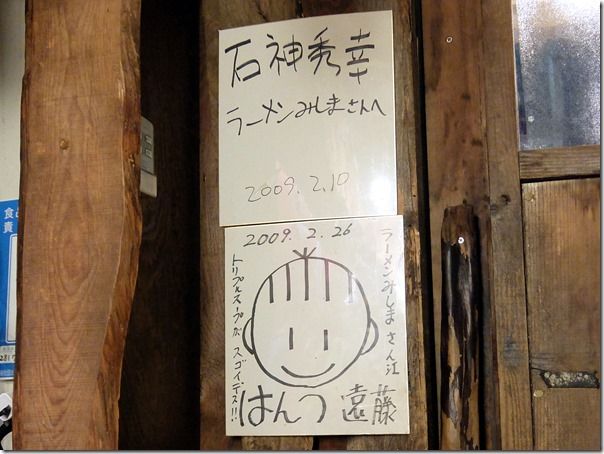 石神秀幸
ラーメンみしまさんへ
2009.2.10
2009.2.26
ラーメンみしまさん江
トリプルスープがスゴイデス!!
はんつ遠藤
食
責